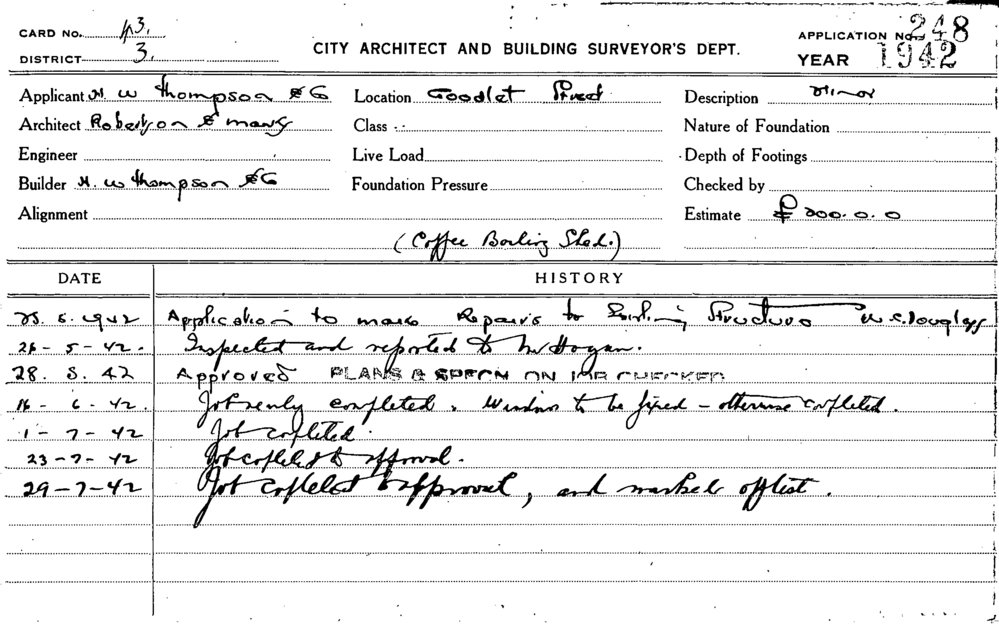 CARD No. 43.
APPLICATION No. 248
DISTRICT 3.
CITY ARCHITECT AND BUILDING SURVEYOR'S DEPT.
YEAR 1942
Applicant H. W Thompson & Co Location Goodlet Street Description Minor
Architect Robertson & Marks Class Nature of Foundation
Engineer Live Load Depth of Footings
Builder H. W Thompson & Co Foundation Pressure Checked by
Alignment Estimate £ 200.0.0
(Coffee Boiling Shed.)
DATE HISTORY
25. 5. 1942 Application to make Repairs to Building Structure W. S. Douglass
26-5-42. Inspected and reported to Mr Hogan.
28. 5. 42 Approved PLANS & SPECN ON JOB CHECKED
16-6-42. Job nearly completed. Windows to be fixed - otherwise completed.
1-7-42 Job completed.
23-7-42 Job completed to approval.
29-7-42 Job completed to approval, and marked off list.